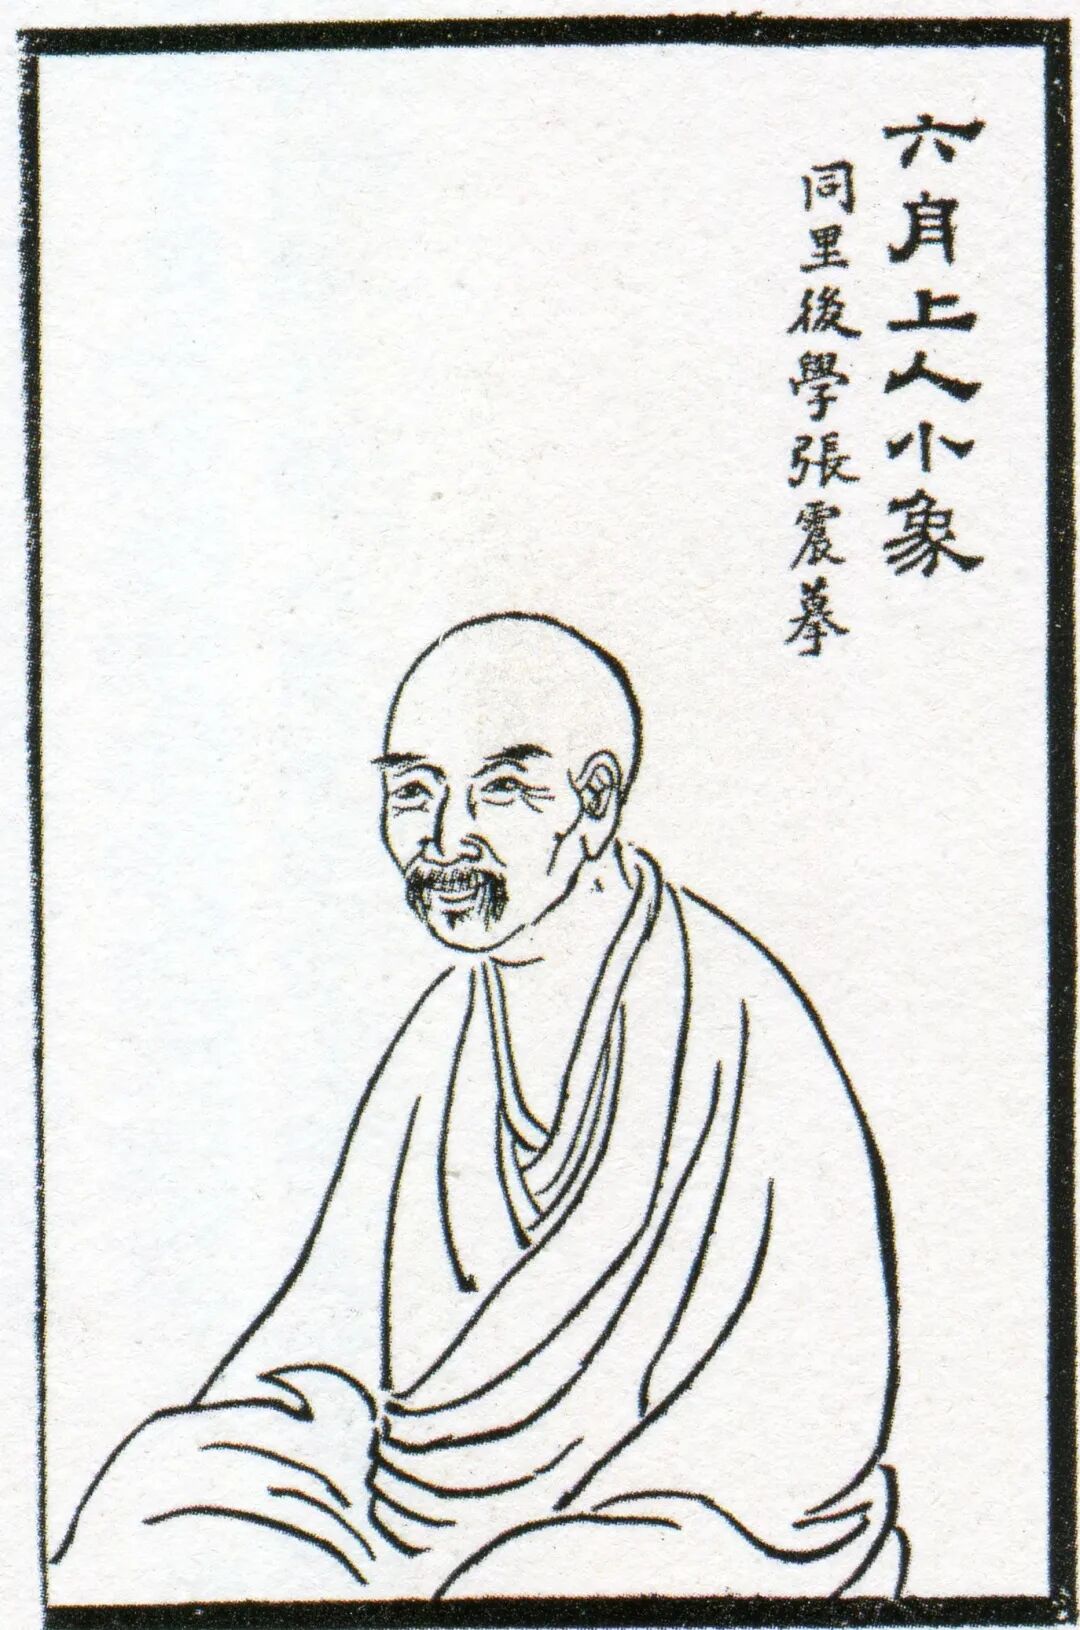 六舟上人小象
同里後學張震摹